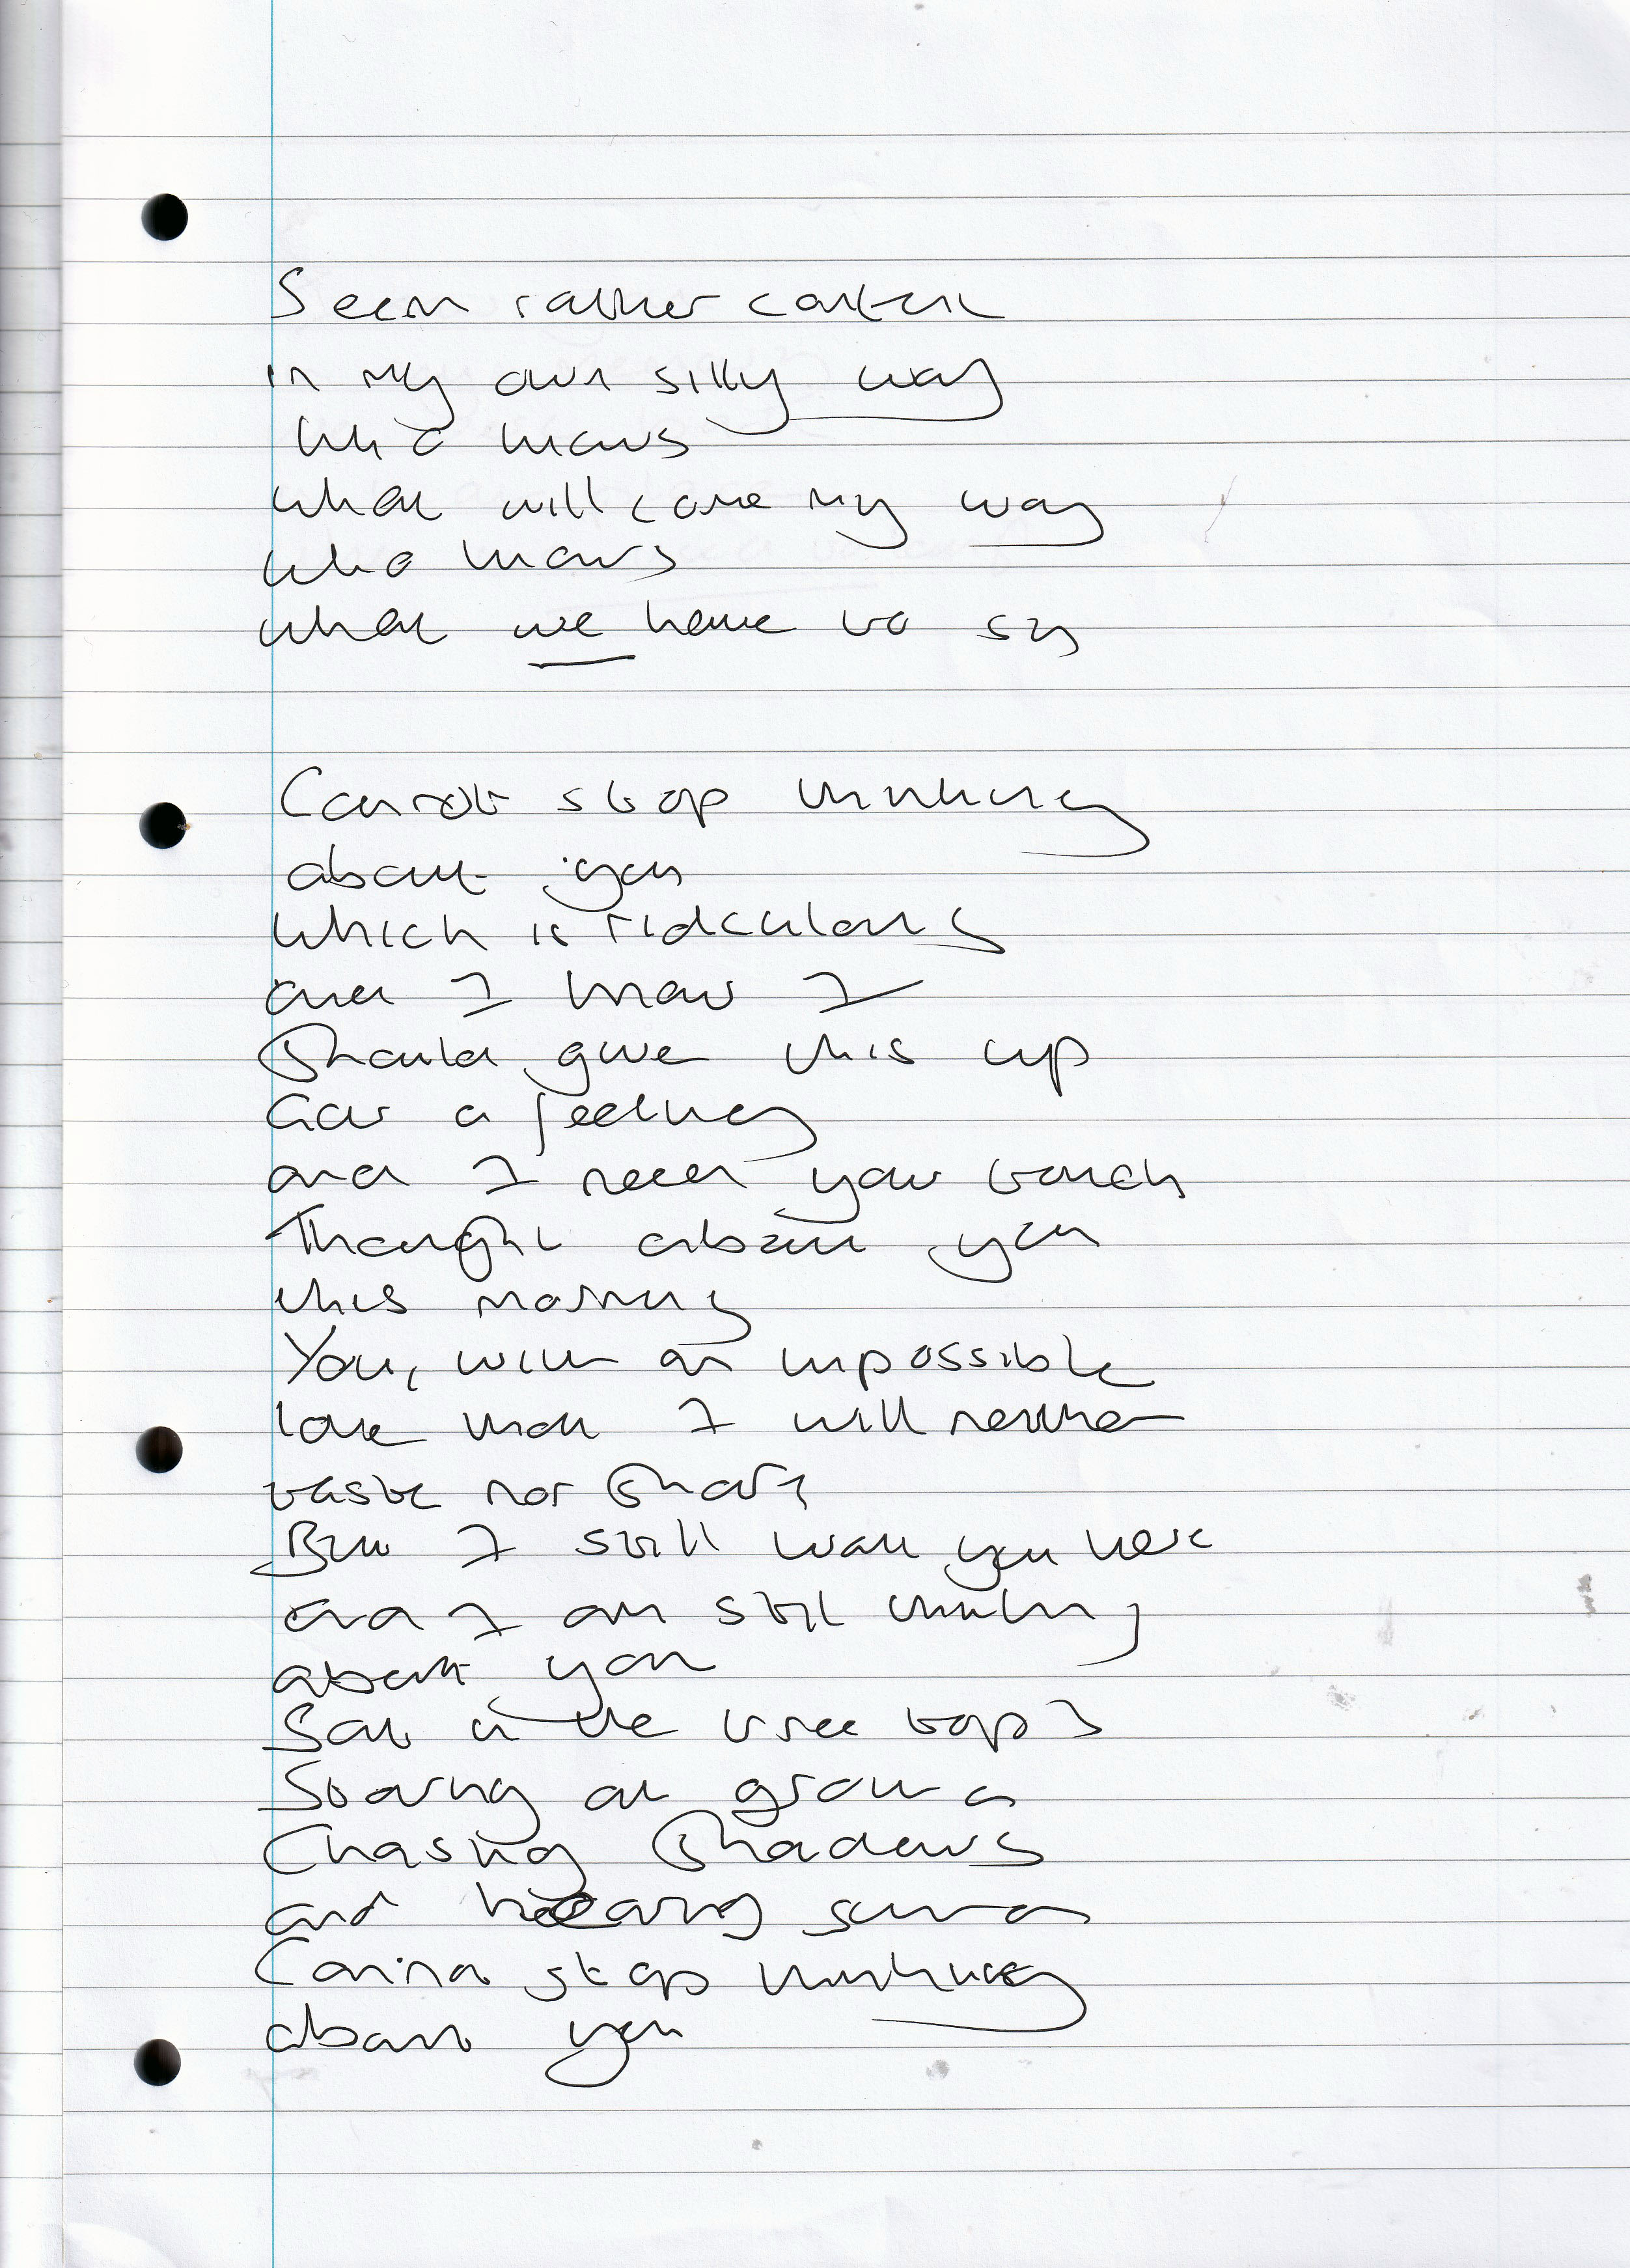 Seem rather content
in my own silly way
Who knows
what will come my way
who knows
what we have to say
Cannot stop thinking
about you
which is ridiculous
and I know I
should give this up
Got a feeling
and I need your touch
Thought about you
this morning
You, with an impossible
love that I will neither
taste nor share
But I still want you here
and I am still thinking
about you
Sat in the tree tops
Staring at ground
Chasing shadows
and hearing sound
Cannot stop thinking
about you